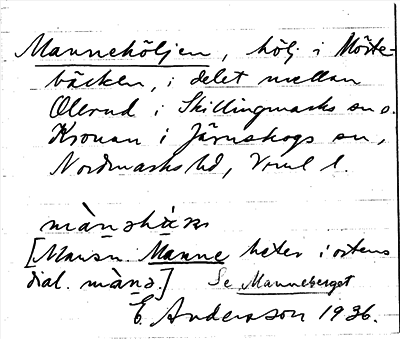 Mannehöljen, hölj i Mörte-
bäcken, i delet mellan
Ollerud i Skillingmarks sn o.
Kronan i Järnskogs sn,
Nordmarks hd, Vrml l.
[Mansn. Manne heter i ortens
dial. månə.] Se Manneberget
E. Andersson 1936.